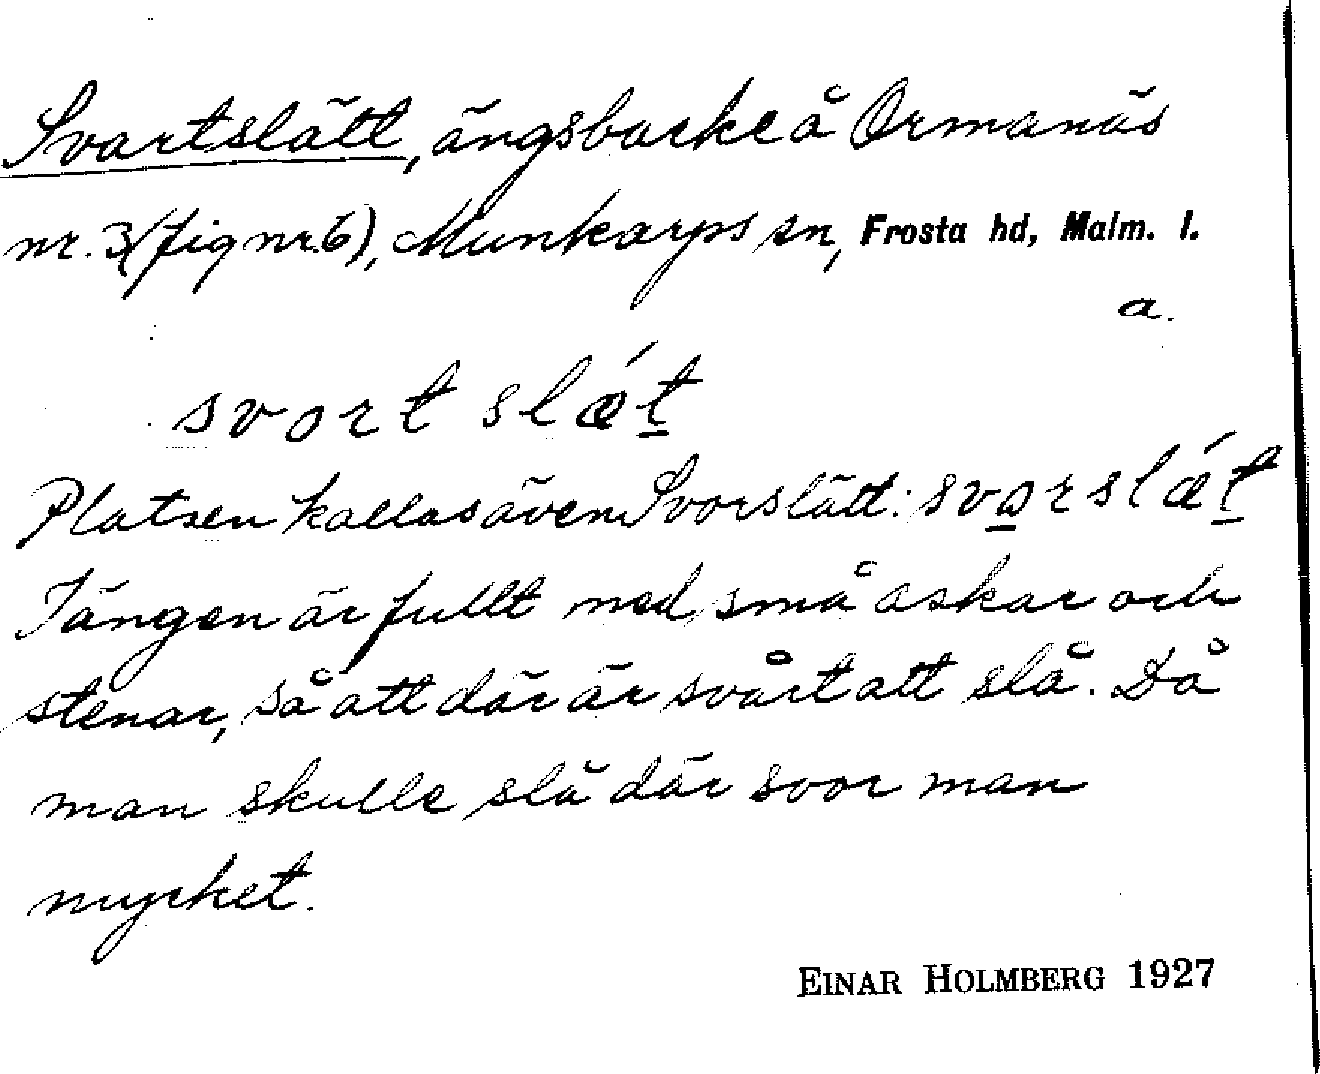 Svartslätt, ängsbacke å Ormanäs
nr. 3 (fig nr. 6), Munkarps sn, Frosta hd, Malm. l.
a.
svort slǽt̲
Platsen kallas även Svorslätt: svo̲rslǽt̲
I ängen är fullt med små askar och
stenar, så att där är svårt att slå. Då
man skulle slå där svor man
mycket.
EINAR HOLMBERG 1927